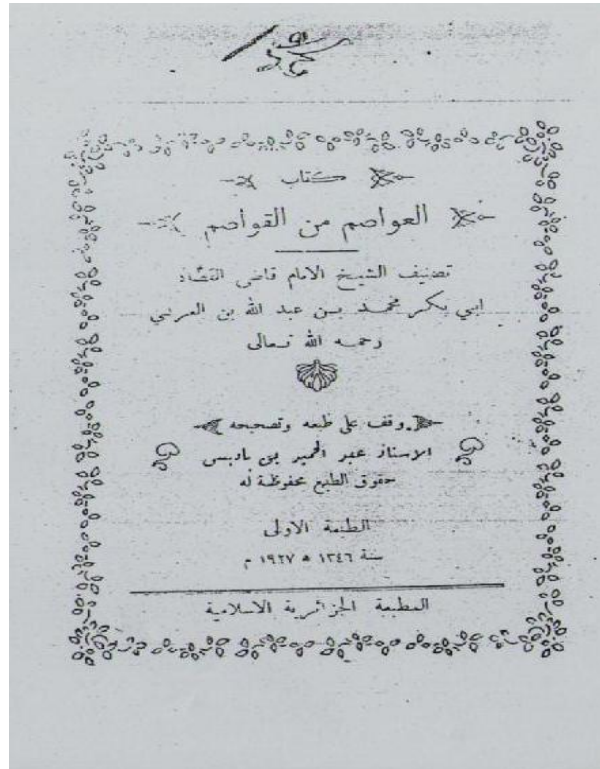 كتاب
العواصم من القواصم
تصنيف الشيخ الامام قاضي القضاة
ابي بكر محمد بن عبد الله بن العربي
رحمه الله تعالى
وقف على طبعه وتصحيحه
الاستاذ عبد الحميد بن باديس
حقوق الطبع محفوظة له
الطبعة الاولى
سنة ١٣٤٦ ه ١٩٢٧ م
المطبعة الجزائرية الاسلامية